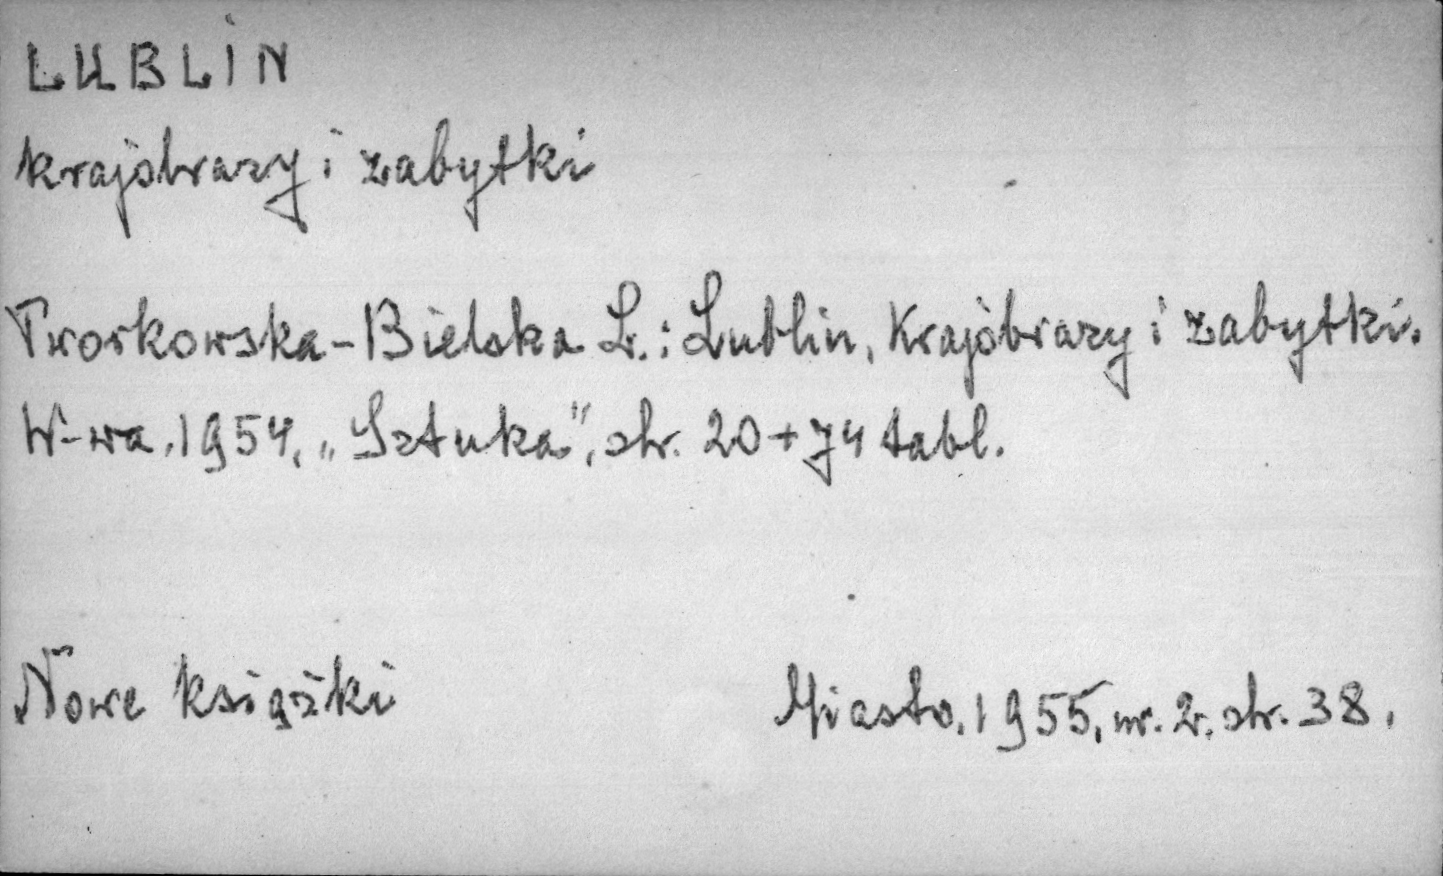 LUBLIN
krajobrazy i zabytki
Tworkowska-Bielska L.: Lublin, Krajobrazy i zabytki.
W-wa, 1954, „Sztuka", str. 20+74 tabl.
Nowe książki Miasto, 1955, nr. 2, str. 38.